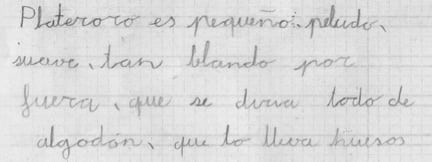 Plateroro es pequeño, peludo,
suave, tan blando por
fuera, que se diria todo de
algodón, que lo lleva huesos